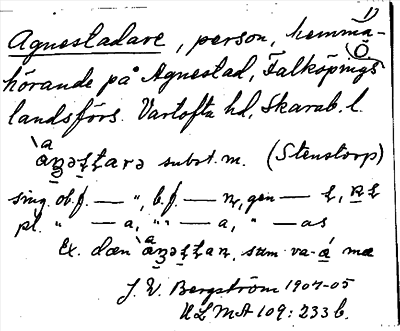 17
Agnestadare, person, hemma-
hörande på Agnestad, Falköpings
landsförs. Vartofta hd, Skarab. l.
subst. m. (Stenstorp)
sing. ob. f. — ", b. f. — n, gen —
pl. " — a, " " — a, " — as
Ex. dæn va-
J. V. Bergström 1904-05
ULMA 109: 233 b.